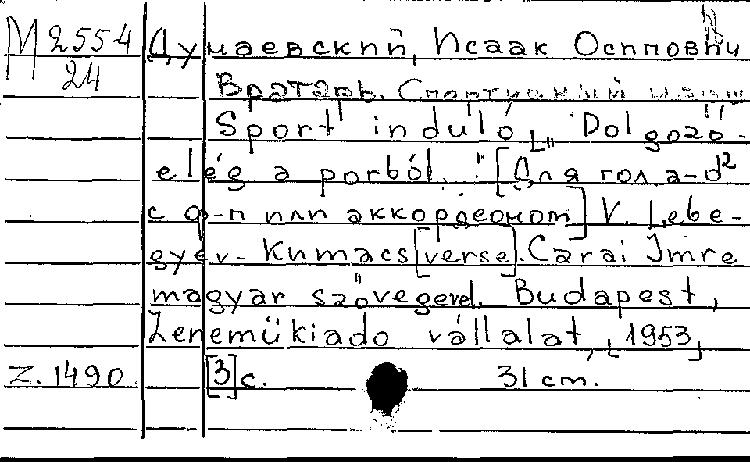 M 2554 Дунаевский, Исаак Осипович
24
Вратарь. Спортивный марш
Sport induló, „Dolgozó-
elég a porból..." [Для гол. a-d²
с ф-п или аккордеоном] V. Lebe-
gyev-Kumacs [verse]. Carai Imre
magyar szövegevel. Budapest,
Zeneműkiado vállalat, [1953]
Z. 1490 [3] с. 31 cm.